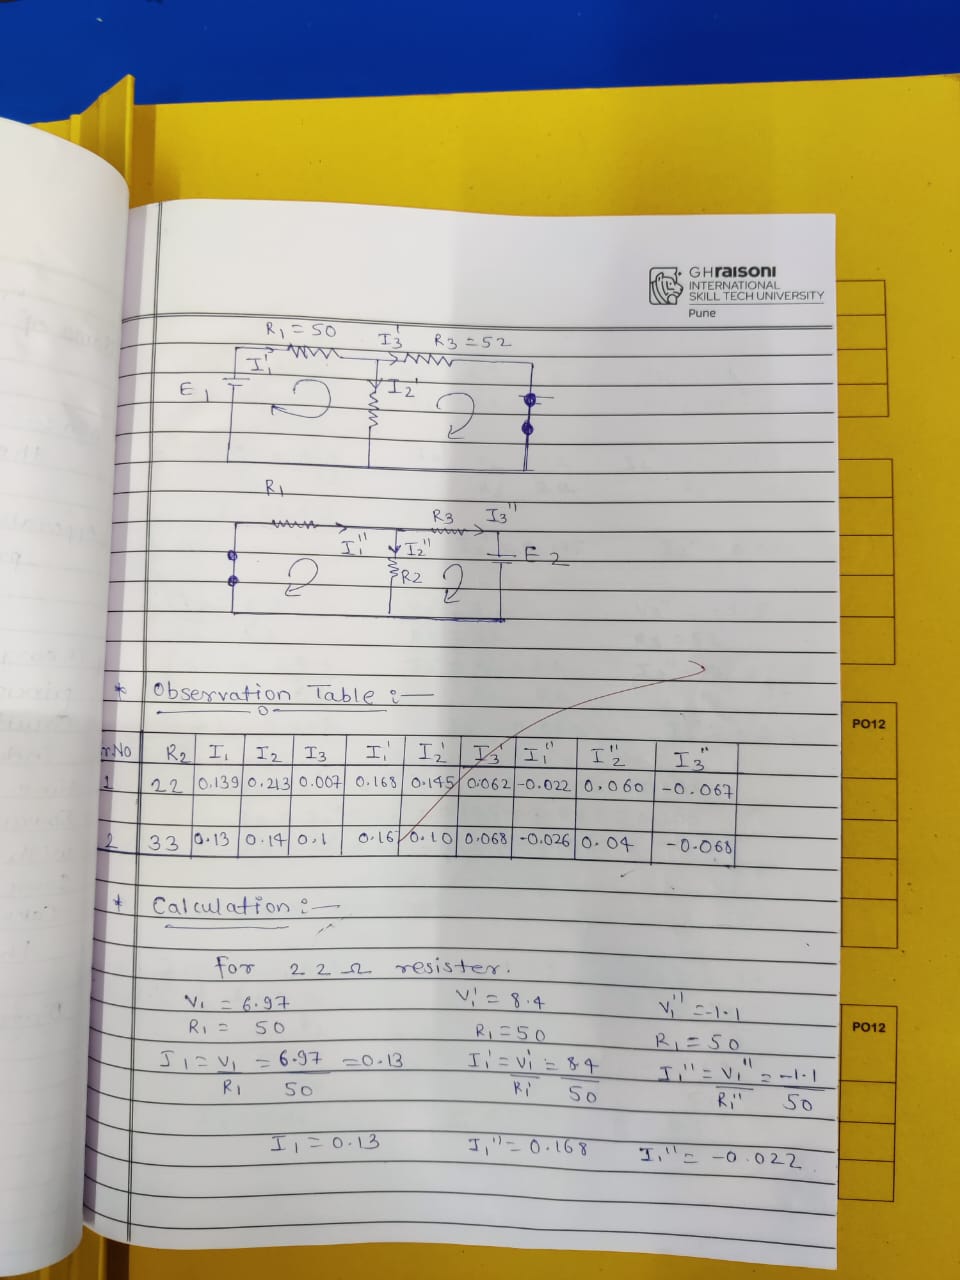 GHraisoni
INTERNATIONAL
SKILL TECH UNIVERSITY
Pune
R₁ = 50 I₃' R₃ = 52
I₁'
E₁ I₂'
R₁
R₃ I₃"
I₁" I₂" E2
R2
* Observation Table :—
PO12
r.No R₂ I₁ I₂ I₃ I₁' I₂' I₃' I₁" I₂" I₃"
1 22 0.139 0.213 0.007 0.168 0.145 0.062 -0.022 0.060 -0.067
2 33 0.13 0.14 0.1 0.16 0.10 0.068 -0.026 0.04 -0.068
* Calculation :—
for 22 Ω resister.
V₁ = 6.97 V₁' = 8.4 V₁" = -1.1
R₁ = 50 R₁ = 50 R₁ = 50
PO12
I₁ = V₁ = 6.97 = 0.13 I₁' = V₁' = 8.4 I₁" = V₁" = -1.1
R₁ 50 R₁' 50 R₁" 50
I₁ = 0.13 I₁" = 0.168 I₁" = -0.022.